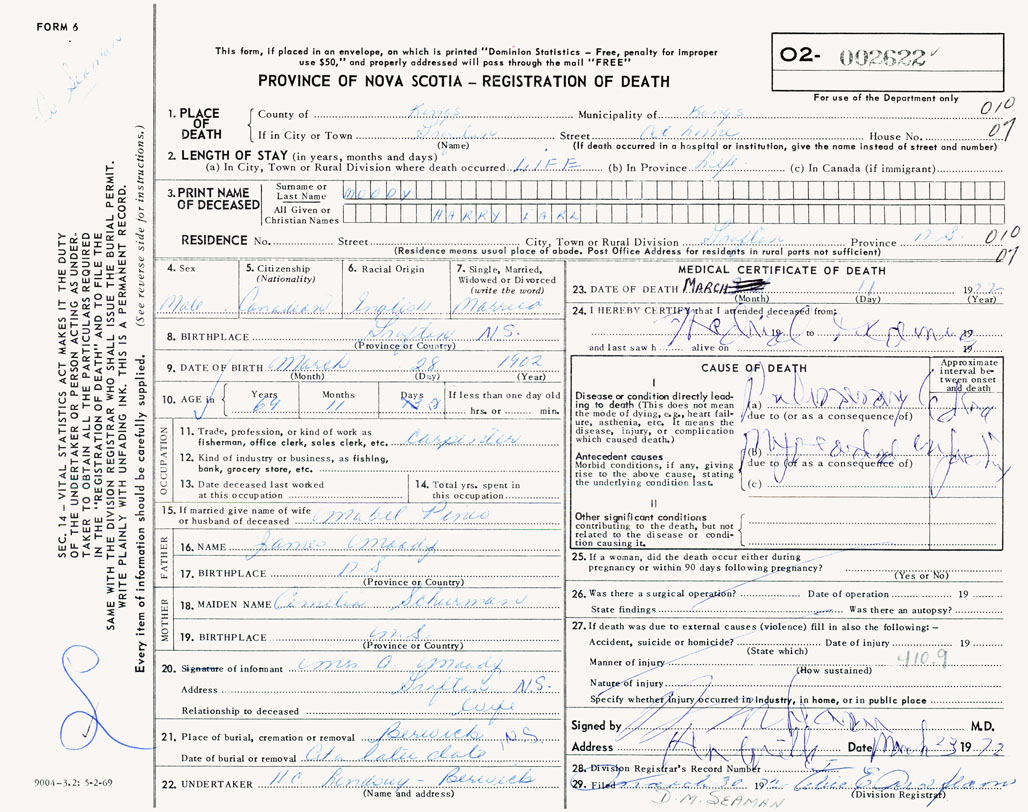 FORM 6
This form, if placed in an envelope, on which is printed "Dominion Statistics – Free, penalty for improper
use $50," and properly addressed will pass through the mail "FREE"
PROVINCE OF NOVA SCOTIA – REGISTRATION OF DEATH
O2- 002622
For use of the Department only
SEC. 14 – VITAL STATISTICS ACT MAKES IT THE DUTY
OF THE UNDERTAKER OR PERSON ACTING AS UNDER-
TAKER TO OBTAIN ALL THE PARTICULARS REQUIRED
IN THE "REGISTRATION OF DEATH" AND TO FILE THE
SAME WITH THE DIVISION REGISTRAR WHO SHALL ISSUE THE BURIAL PERMIT.
WRITE PLAINLY WITH UNFADING INK. THIS IS A PERMANENT RECORD.
Every item of information should be carefully supplied. (See reverse side for instructions.)
Seaman
1. PLACE OF DEATH
County of Kings Municipality of Kings 010
If in City or Town Grafton Street At home House No. 07
(Name) (If death occurred in a hospital or institution, give the name instead of street and number)
2. LENGTH OF STAY (in years, months and days)
(a) In City, Town or Rural Division where death occurred LIFE (b) In Province life (c) In Canada (if immigrant)
3. PRINT NAME OF DECEASED
Surname or Last Name MOODY
All Given or Christian Names HARRY EARL
RESIDENCE No. Street City, Town or Rural Division Grafton Province N S 010
(Residence means usual place of abode. Post Office Address for residents in rural parts not sufficient) 07
4. Sex Male
5. Citizenship (Nationality) Canadian
6. Racial Origin English
7. Single, Married, Widowed or Divorced (write the word) Married
8. BIRTHPLACE Grafton N.S.
(Province or Country)
9. DATE OF BIRTH March 28 1902
(Month) (Day) (Year)
10. AGE in Years 69 Months 11 Days If less than one day old hrs. or min.
OCCUPATION
11. Trade, profession, or kind of work as
fisherman, office clerk, sales clerk, etc. Carpenter
12. Kind of industry or business, as fishing,
bank, grocery store, etc.
13. Date deceased last worked
at this occupation
14. Total yrs. spent in
this occupation
15. If married give name of wife
or husband of deceased Mabel
FATHER
16. NAME James Moody
17. BIRTHPLACE N S
(Province or Country)
MOTHER
18. MAIDEN NAME Schurman
19. BIRTHPLACE N.S
(Province or Country)
20. Signature of informant Mrs Moody
Address Grafton N.S.
Relationship to deceased wife
21. Place of burial, cremation or removal Berwick, N.S.
Date of burial or removal At a later date
22. UNDERTAKER H.C. Lindsay - Berwick
(Name and address)
9004-3.2: 5-2-69
MEDICAL CERTIFICATE OF DEATH
23. DATE OF DEATH MARCH 11 1972
(Month) (Day) (Year)
24. I HEREBY CERTIFY that I attended deceased from:
19 to 19
and last saw h alive on 19
CAUSE OF DEATH
Approximate interval between onset and death
I
Disease or condition directly lead-
ing to death (This does not mean
the mode of dying, e.g., heart fail-
ure, asthenia, etc. It means the
disease, injury, or complication
which caused death.)
(a) Pulmonary
due to (or as a consequence of)
Antecedent causes
Morbid conditions, if any, giving
rise to the above cause, stating
the underlying condition last.
(b) Myocardial
due to (or as a consequence of)
(c)
II
Other significant conditions
contributing to the death, but not
related to the disease or condi-
tion causing it.
25. If a woman, did the death occur either during
pregnancy or within 90 days following pregnancy?
(Yes or No)
26. Was there a surgical operation? Date of operation 19
State findings Was there an autopsy?
27. If death was due to external causes (violence) fill in also the following: –
Accident, suicide or homicide? Date of injury 19
(State which)
Manner of injury 410.9
(How sustained)
Nature of injury
Specify whether injury occurred in industry, in home, or in public place
Signed by M.D.
Address Date March 23 1972
28. Division Registrar's Record Number
29. Filed March 19
(Division Registrar)
D. M. SEAMAN